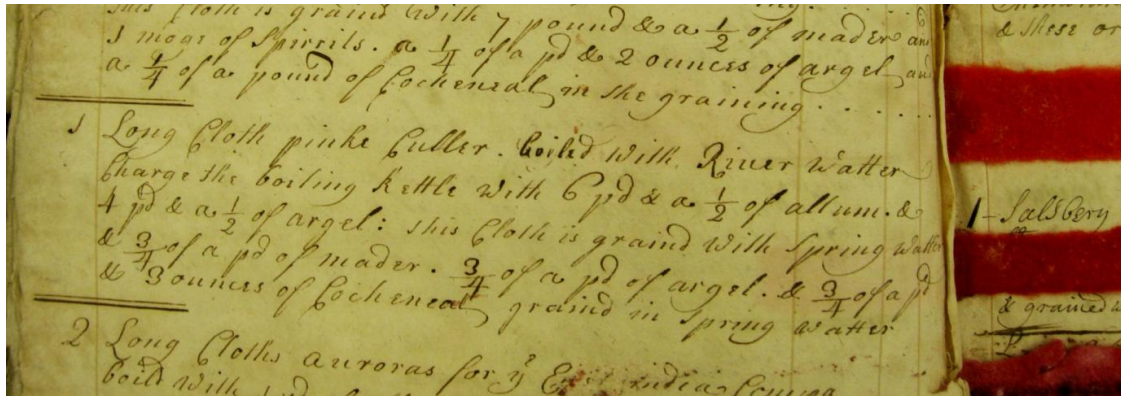 this Cloth is graind with 7 pound & a 1/2 of mader and
1 moge of Spirrils. a 1/4 of a pd & 2 ounces of argel and
a 1/4 of a pound of Cocheneal in the graining . . . .
1 Long Cloth pinke Culler . boiled with River Watter
Charge the boiling Kettle with 6 pd & a 1/2 of allum. &
4 pd & a 1/2 of argel: this Cloth is graind with Spring Watter
& 3/4 of a pd of mader . 3/4 of a pd of argel. & 3/4 of a pd
& 3 ounces of Cocheneal graind in Spring Watter
2 Long Cloths auroras for ye
boild with
& these or
1 - Salsbery
& grained